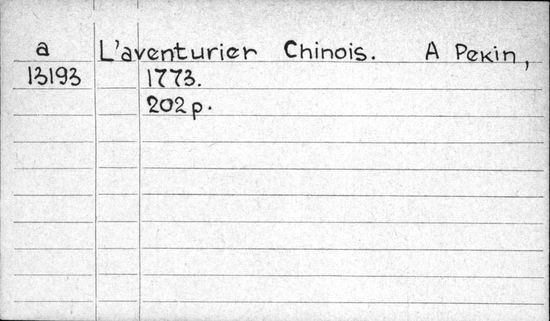 a L'aventurier Chinois. A Pekin,
13193 1773.
202 p.